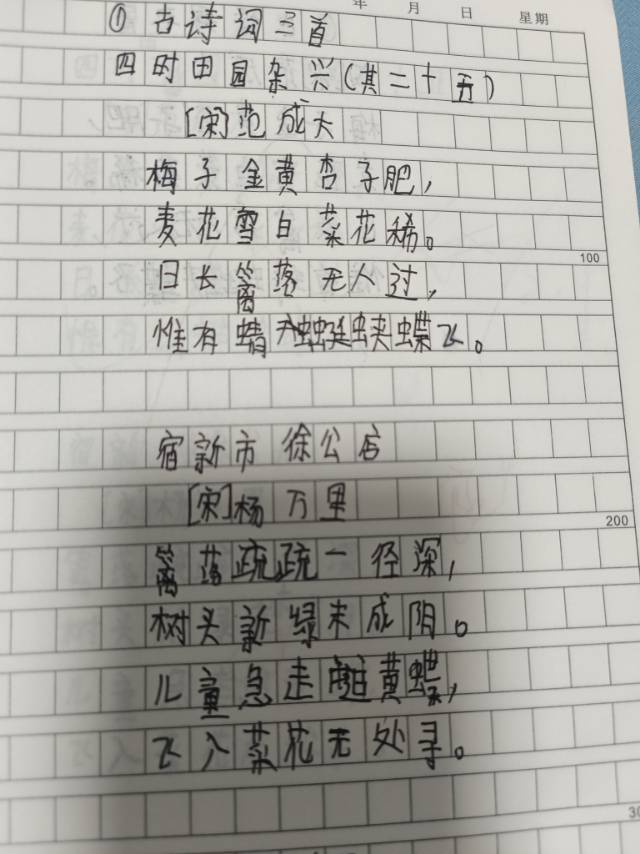 年 月 日 星期
① 古诗词三首
四时田园杂兴(其二十五)
[宋]范成大
梅子金黄杏子肥,
麦花雪白菜花稀。
100
日长篱落无人过,
惟有蜻蜓蛱蝶飞。
宿新市徐公店
[宋]杨万里
200
篱落疏疏一径深,
树头新绿未成阴。
儿童急走追黄蝶,
飞入菜花无处寻。